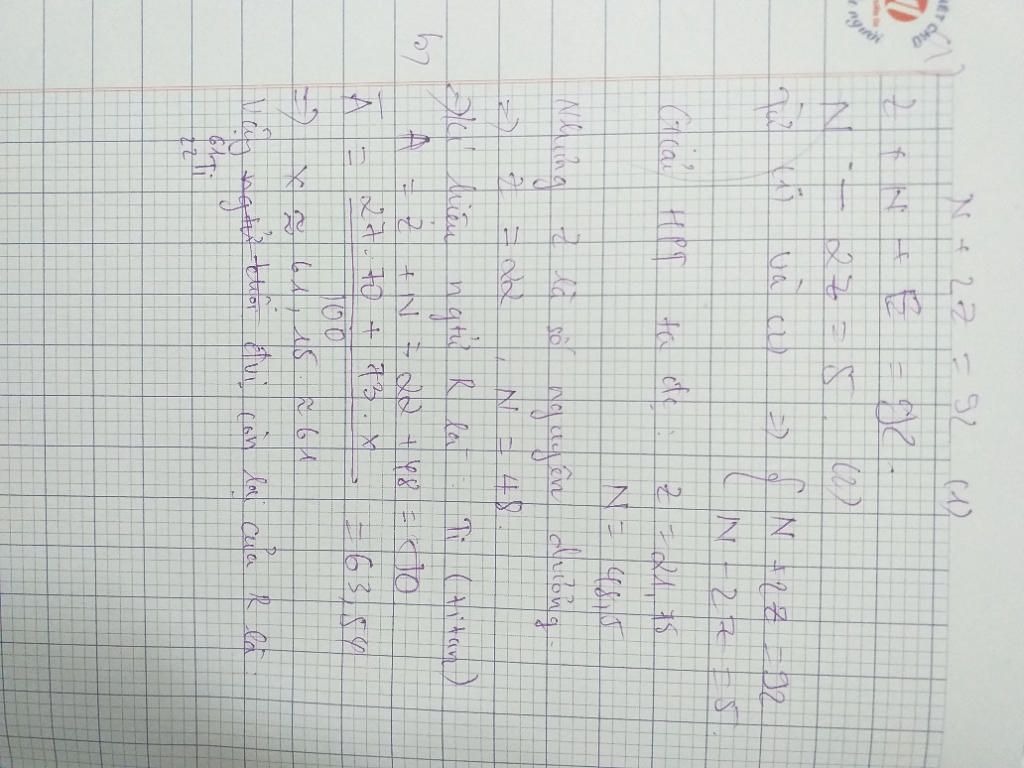 N + 2Z = 92 (1)
1)
Z + N + E = 92.
N - 2Z = 5. (2)
Từ (1) và (2) => { N + 2Z = 92
N - 2Z = 5.
Giải HPT ta đc: Z = 21,75
N = 48,5
Nhưng Z là số nguyên dương.
=> Z = 22, N = 48.
=> Kí hiệu ngutử R là: Ti (titan)
b) A = Z + N = 22 + 48 = 70
A = 27.70 + 73.x / 100 = 63,54
=> x ≈ 61,15 ≈ 61
Vậy đvị còn lại của R là:
61 Ti
22
NGƯỜI